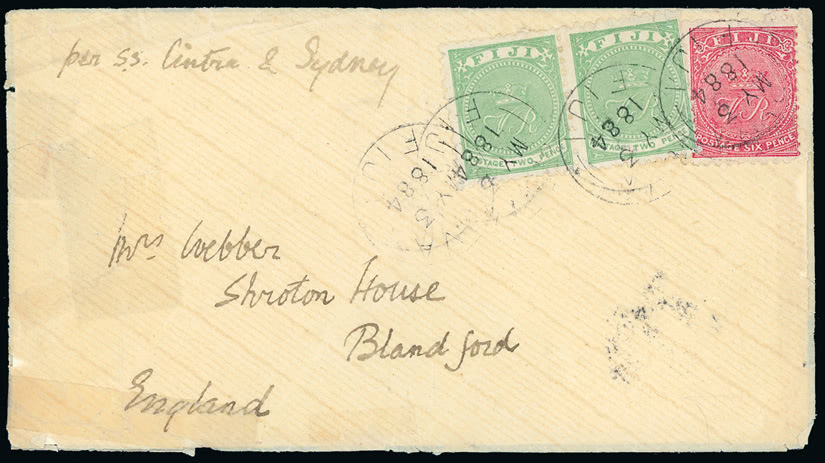 per s.s. Cintra & Sydney
FIJI
POSTAGE TWO PENCE
FIJI
VR
POSTAGE TWO PENCE
FIJI
VR
POSTAGE SIX PENCE
SUVA
MY 3
1884
FIJI
Mrs Webber
Shroton House
Blandford
England